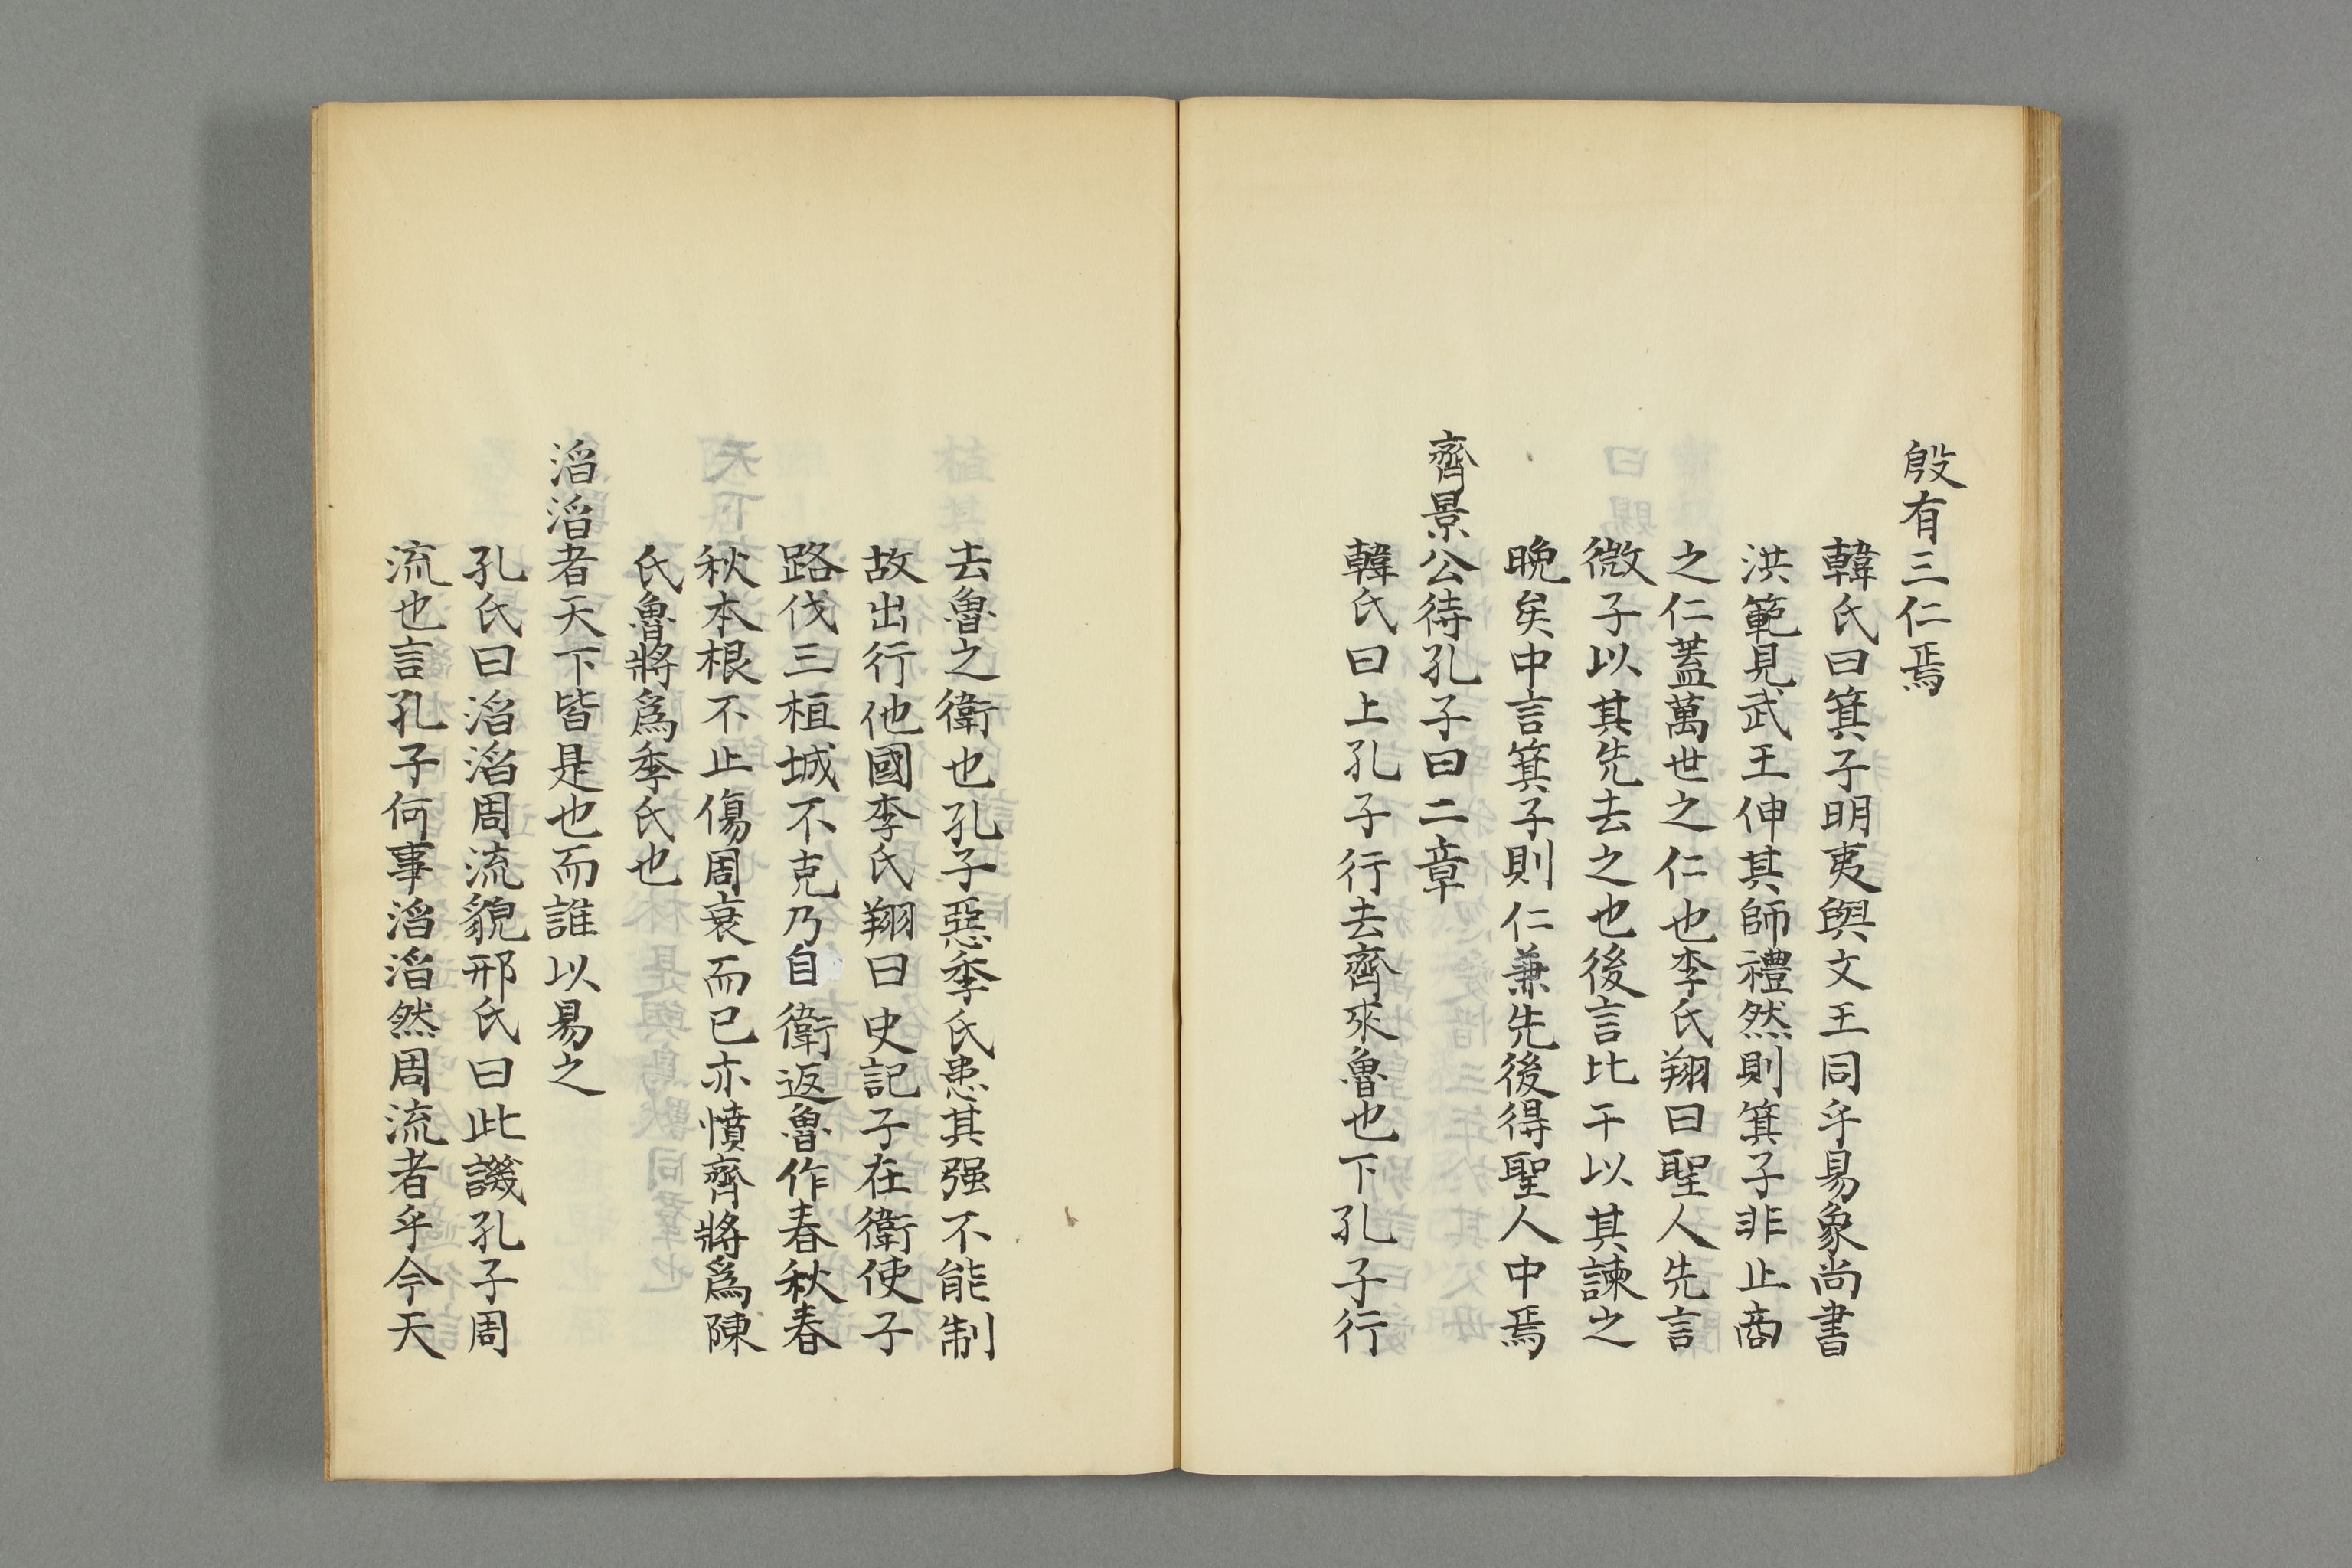 殷有三仁焉
韓氏曰箕子明夷與文王同乎易象尚書
洪範見武王伸其師禮然則箕子非止商
之仁蓋萬世之仁也李氏翔曰聖人先言
微子以其先去之也後言比干以其諫之
晩矣中言箕子則仁兼先後得聖人中焉
齊景公待孔子曰二章
韓氏曰上孔子行去齊來魯也下孔子行
去魯之衛也孔子惡季氏患其强不能制
故出行他國李氏翔曰史記子在衛使子
路伐三桓城不克乃自衛返魯作春秋春
秋本根不止傷周衰而已亦憤齊將爲陳
氏魯將爲季氏也
滔滔者天下皆是也而誰以易之
孔氏曰滔滔周流貌邢氏曰此譏孔子周
流也言孔子何事滔滔然周流者乎今天